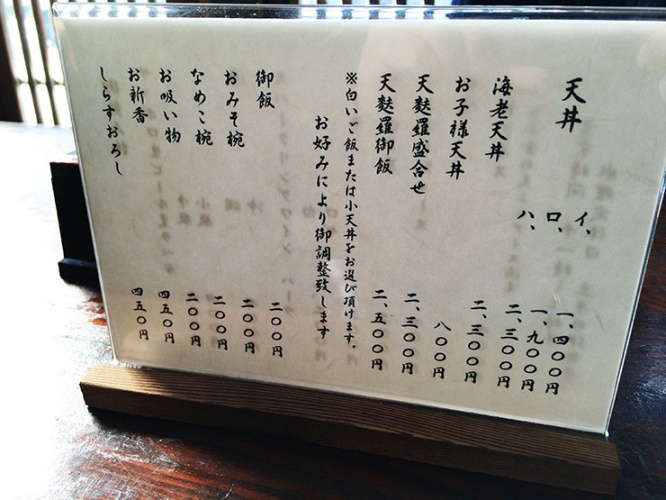 天丼
イ、 一、四〇〇円
ロ、 一、九〇〇円
ハ、 二、三〇〇円
海老天丼 二、三〇〇円
お子様天丼 八〇〇円
天麩羅盛合せ 二、三〇〇円
天麩羅御飯 二、五〇〇円
※白いご飯または小天丼をお選び頂けます。
お好みにより御調整致します
御飯 二〇〇円
おみそ椀 二〇〇円
なめこ椀 二〇〇円
お吸い物 四五〇円
お新香 四五〇円
しらすおろし